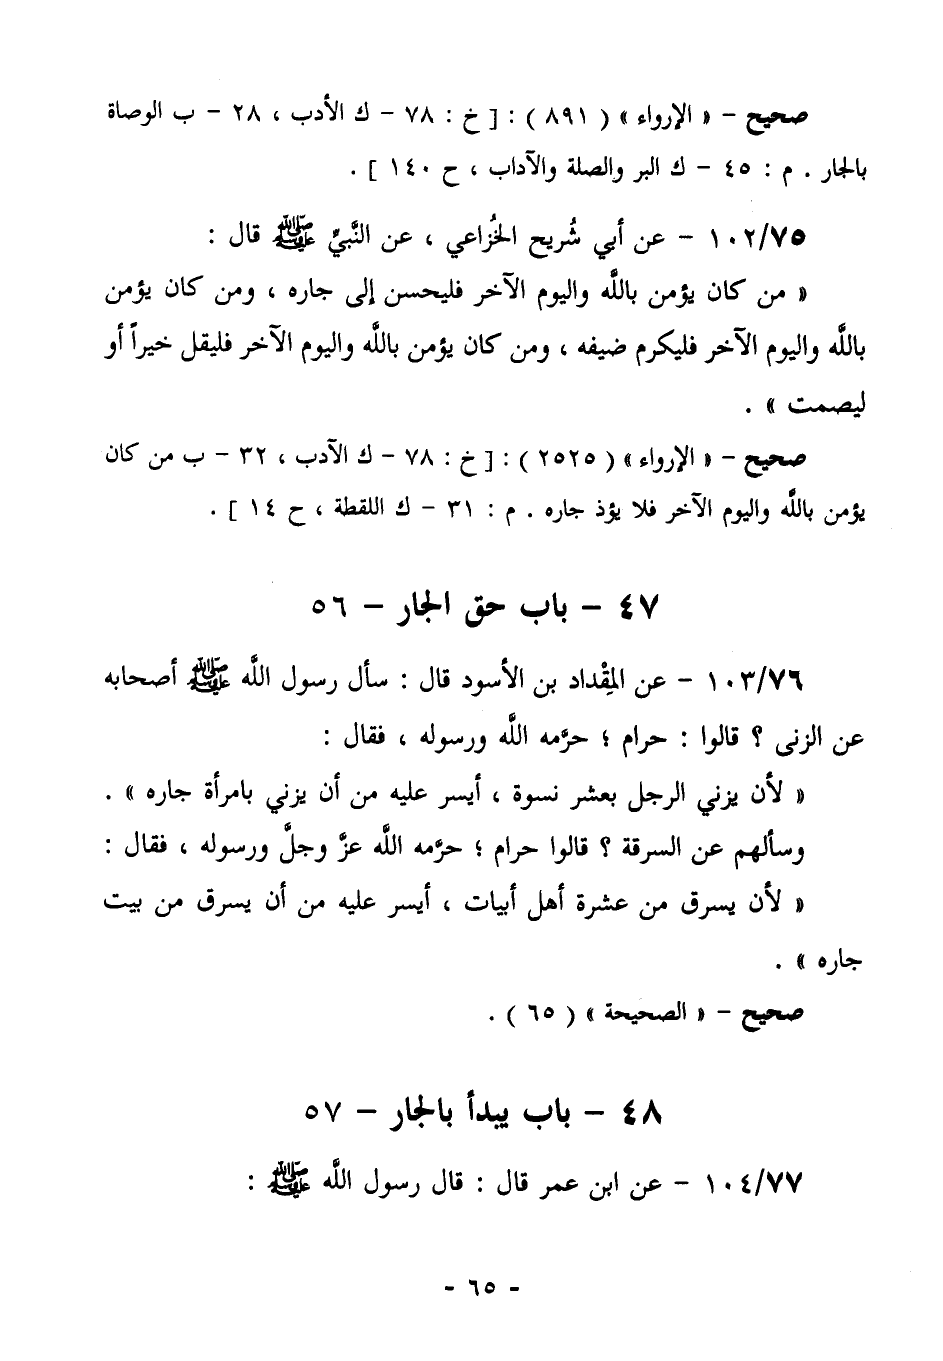 صحيح – « الإرواء » ( ٨٩١ ) : [ خ : ٧٨ – ك الأدب ، ٢٨ – ب الوصاة
بالجار . م : ٤٥ – ك البر والصلة والآداب ، ح ١٤٠ ] .
١٠٢/٧٥ – عن أبي شُريح الخُزاعي ، عن النَّبيِّ ﷺ قال :
« من كان يؤمن باللَّه واليوم الآخر فليحسن إلى جاره ، ومن كان يؤمن
باللَّه واليوم الآخر فليكرم ضيفه ، ومن كان يؤمن باللَّه واليوم الآخر فليقل خيراً أو
ليصمت » .
صحيح – « الإرواء » ( ٢٥٢٥ ) : [ خ : ٧٨ – ك الأدب ، ٣٢ – ب من كان
يؤمن باللَّه واليوم الآخر فلا يؤذ جاره . م : ٣١ – ك اللقطة ، ح ١٤ ] .
٤٧ – باب حق الجار – ٥٦
١٠٣/٧٦ – عن المِقْداد بن الأسود قال : سأل رسول اللَّه ﷺ أصحابه
عن الزنى ؟ قالوا : حرام ؛ حرَّمه اللَّه ورسوله ، فقال :
« لأن يزني الرجل بعشر نسوة ، أيسر عليه من أن يزني بامرأة جاره » .
وسألهم عن السرقة ؟ قالوا حرام ؛ حرَّمه اللَّه عزَّ وجلَّ ورسوله ، فقال :
« لأن يسرق من عشرة أهل أبيات ، أيسر عليه من أن يسرق من بيت
جاره » .
صحيح – « الصحيحة » ( ٦٥ ) .
٤٨ – باب يبدأ بالجار – ٥٧
١٠٤/٧٧ – عن ابن عمر قال : قال رسول اللَّه ﷺ :
- ٦٥ -